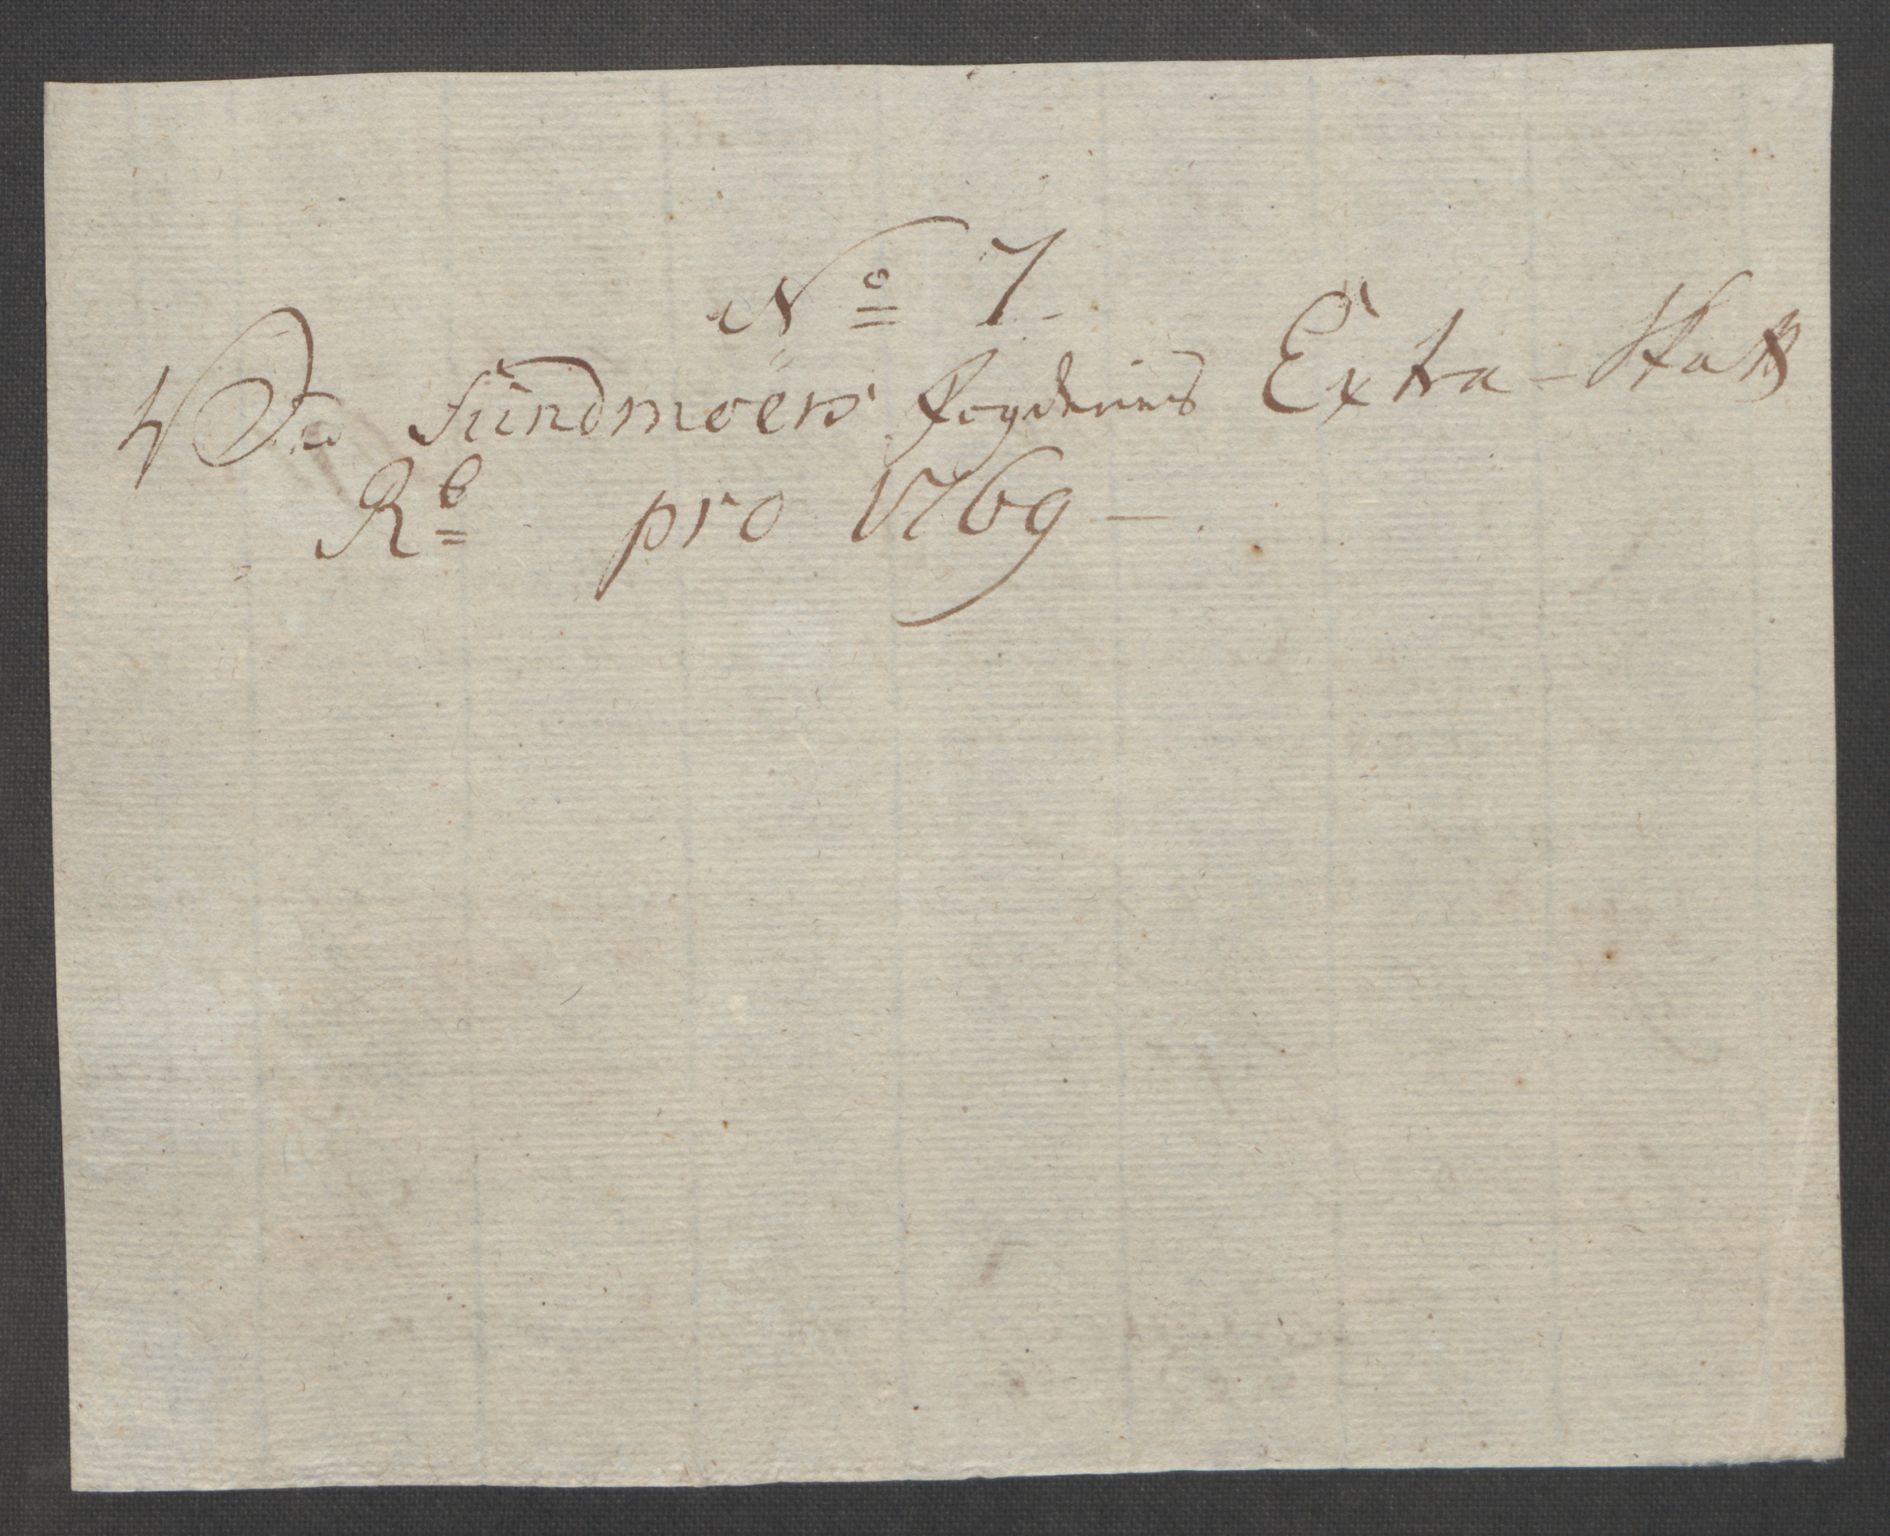 No 7.
Til Sundmöers Fogderies Extra-Skatts
Rb pro 1769 —.